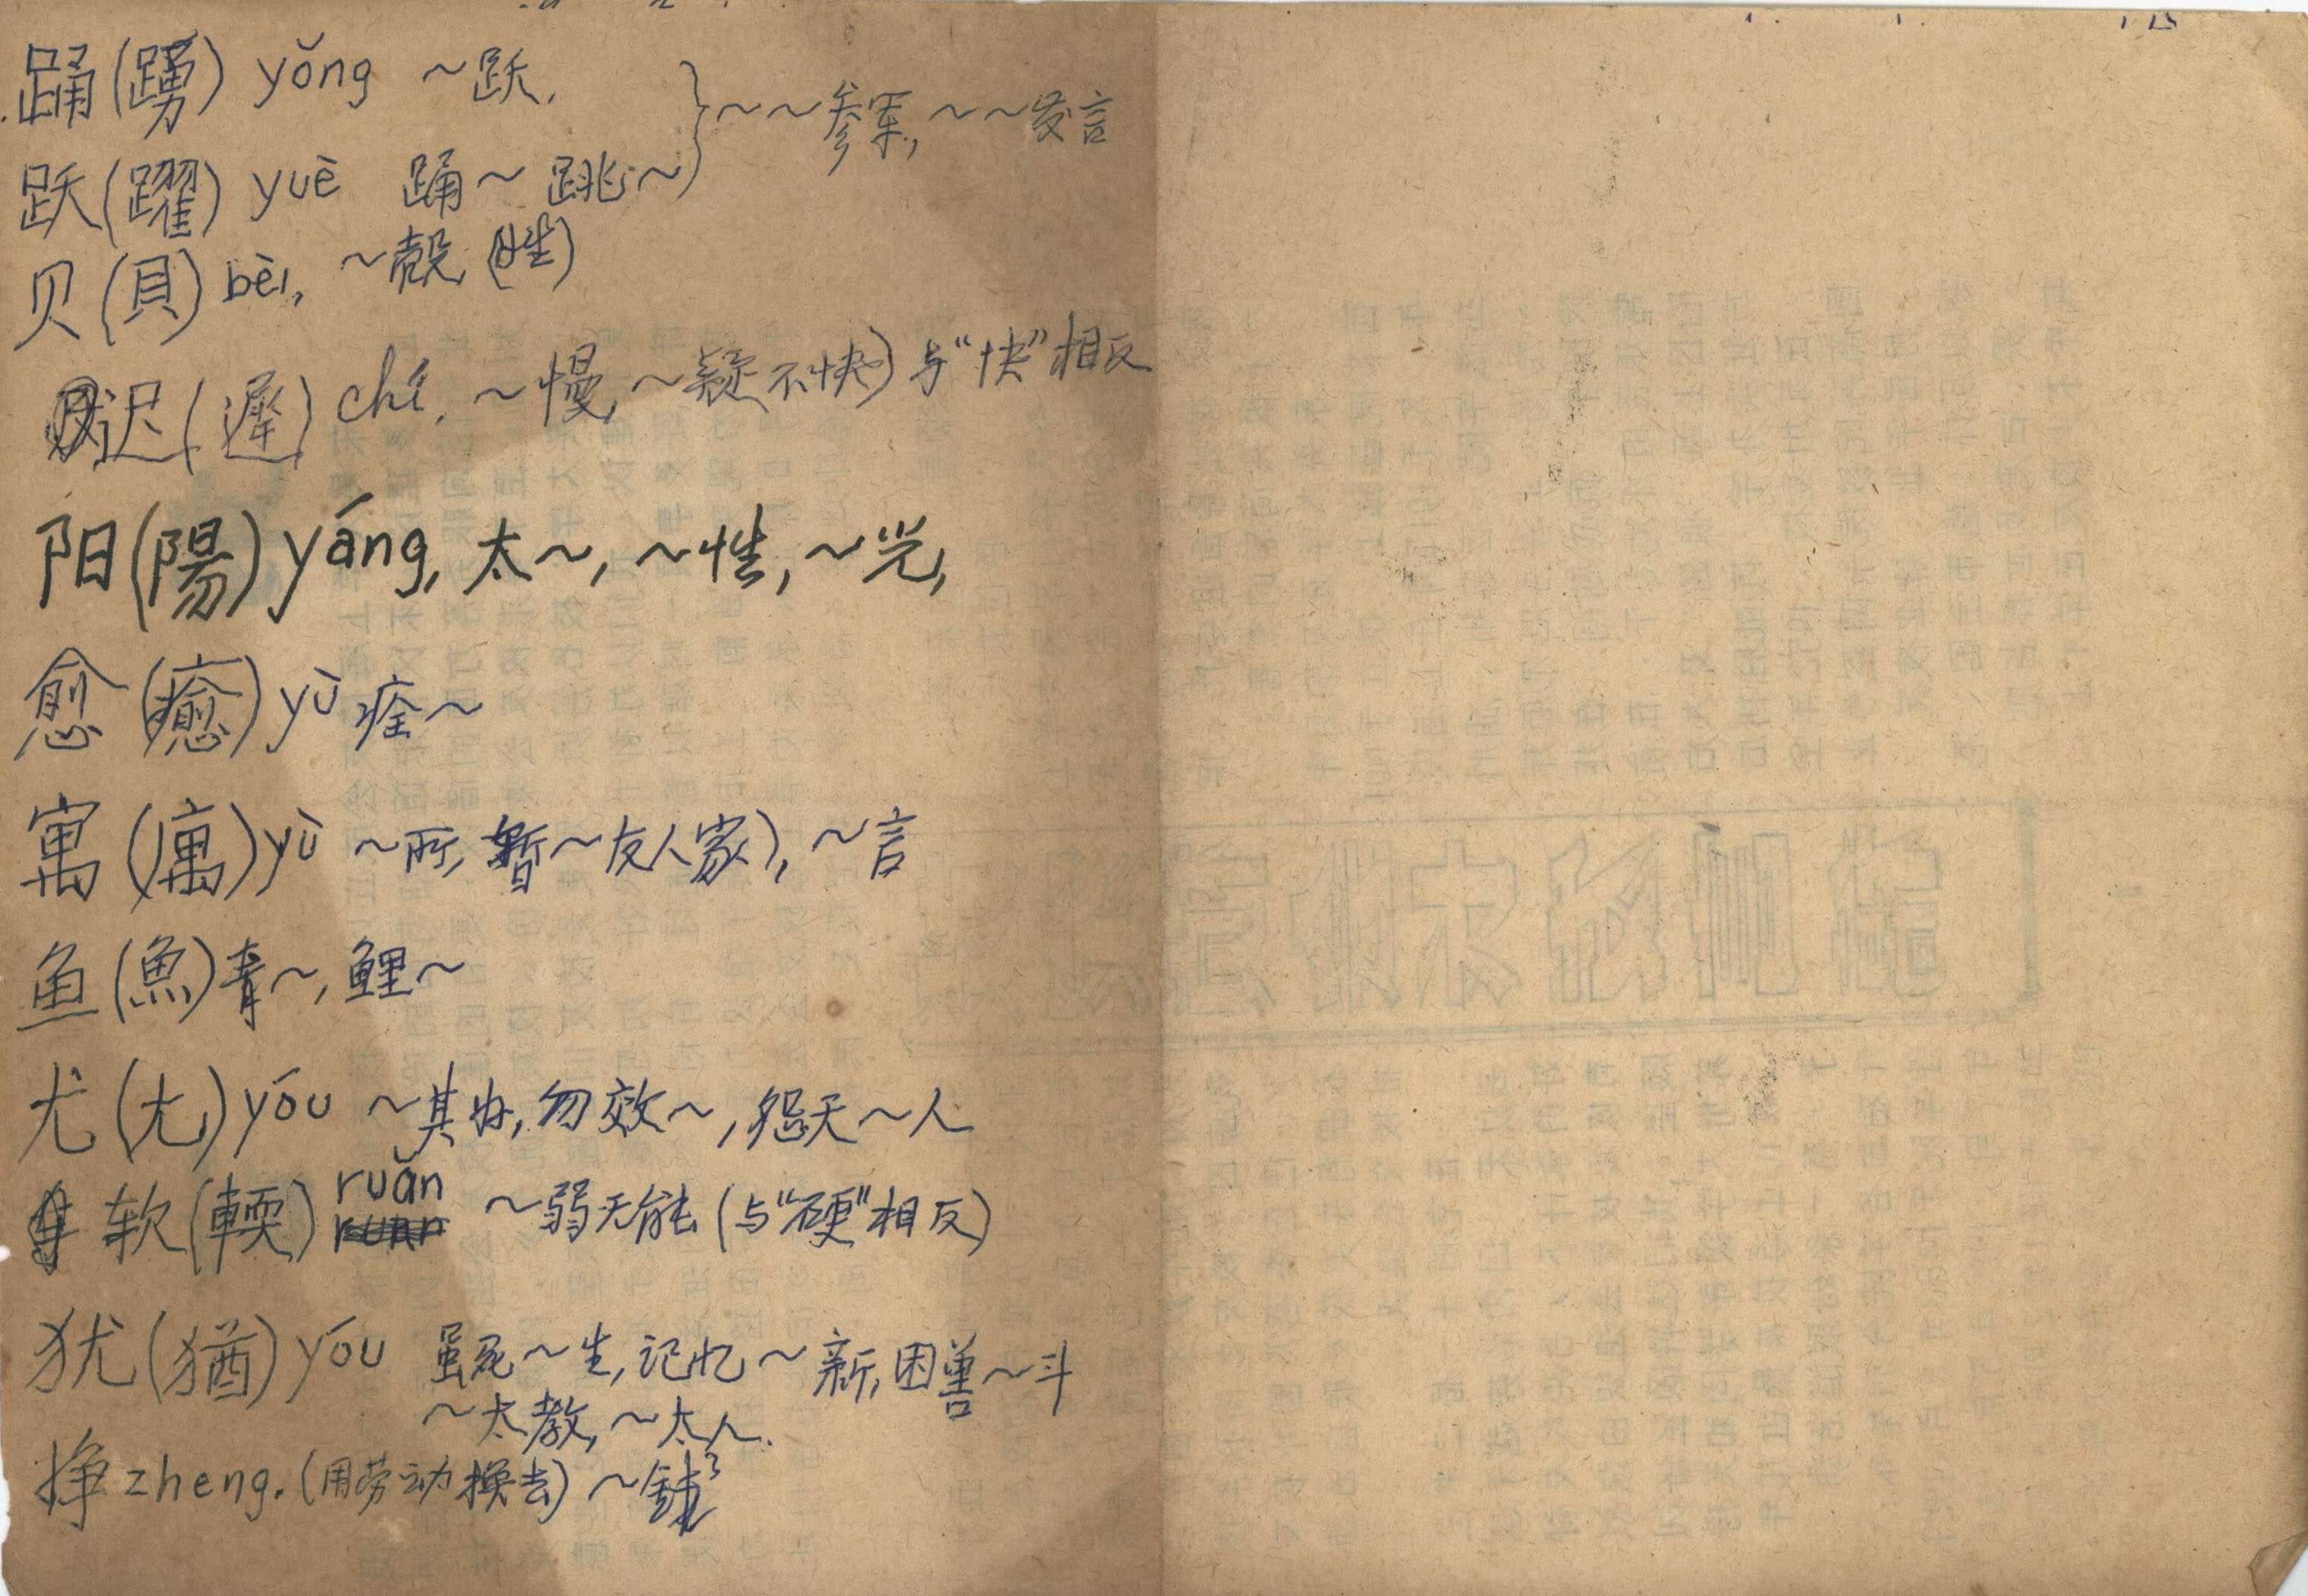 踊(踴) yǒng ~跃, } ~~参军, ~~发言
跃(躍) yuè 踊~ 跳~
贝(貝) bèi, ~殻 (姓)
迟(遲) chí, ~慢, ~疑(不快) 与“快”相反
阳(陽) yáng, 太~, ~性, ~光,
愈(癒) yù 痊~
寓(庽) yù ~所, 暂~友人家), ~言
鱼(魚) 青~, 鲤~
尤(尢) yóu ~其, 勿效~, 怨天~人
软(輭) ruǎn ~弱无能 (与“硬”相反)
犹(猶) yóu 虽死~生, 记忆~新, 困兽~斗
~太教, ~太人.
挣 zheng. (用劳动换去) ~錢